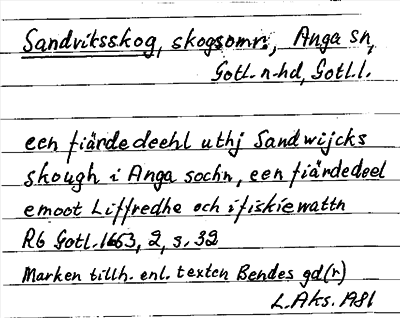 Sandviksskog, skogsomr., Anga sn,
Gotl. n. hd, Gotl. l.
een fiärdedeehl uthj Sandwijcks
skough i Anga sochn, een fiärdedeel
emoot Liffredhe och i fiskiewattn
Rb Gotl. 1653, 2, s. 32
Marken tillh. enl. texten Bendes gd(r)
L. Aks. A81